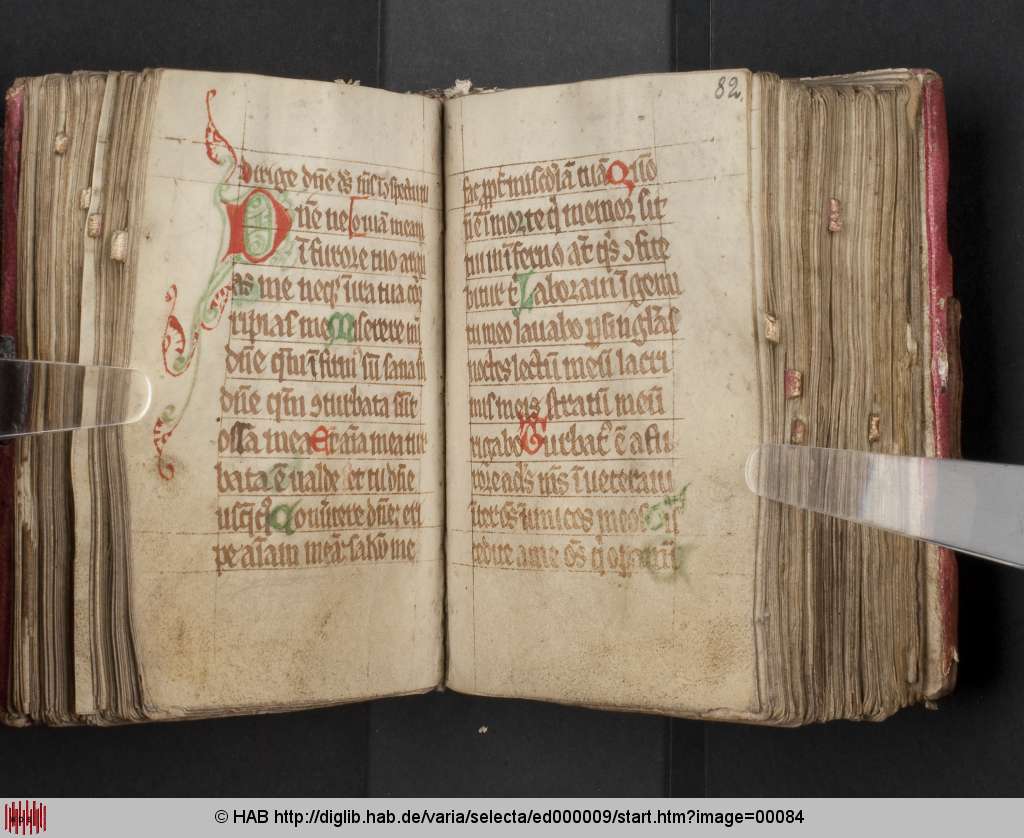 dirige dn̄e ds̄ ms̄
Dn̄e ne
ī furore tuo argu
as me neqꝫ ī ira tua cor
ripias me Miserere m̄
dn̄e qm̄ īfirm' sū sana m̄
dn̄e qm̄ ꝯturbata sūt
ossa mea Et aīa mea tur
bata ē ualde et tu dn̄e
usq̄quo Conūtere dn̄e: eri
pe aīam meā: saluū me
82.
fac ꝓpt̄ miscd̄iā tuā Qm̄
n̄ ē ī morte q̇ memor sit
tui in īferno aūt q̇s ꝯfite
bitur t' Laboraui ī gemi
tu meo lauabo ꝑ singlās
noctes lectū meū lacri
mis meis stratū meū
rigabo Turbat' ē a fu
rore oculs ms̄ īueteraui
īter oēs inimicos meos Dis
cedite a me oēs q̇ oꝑamī
© HAB http://diglib.hab.de/varia/selecta/ed000009/start.htm?image=00084